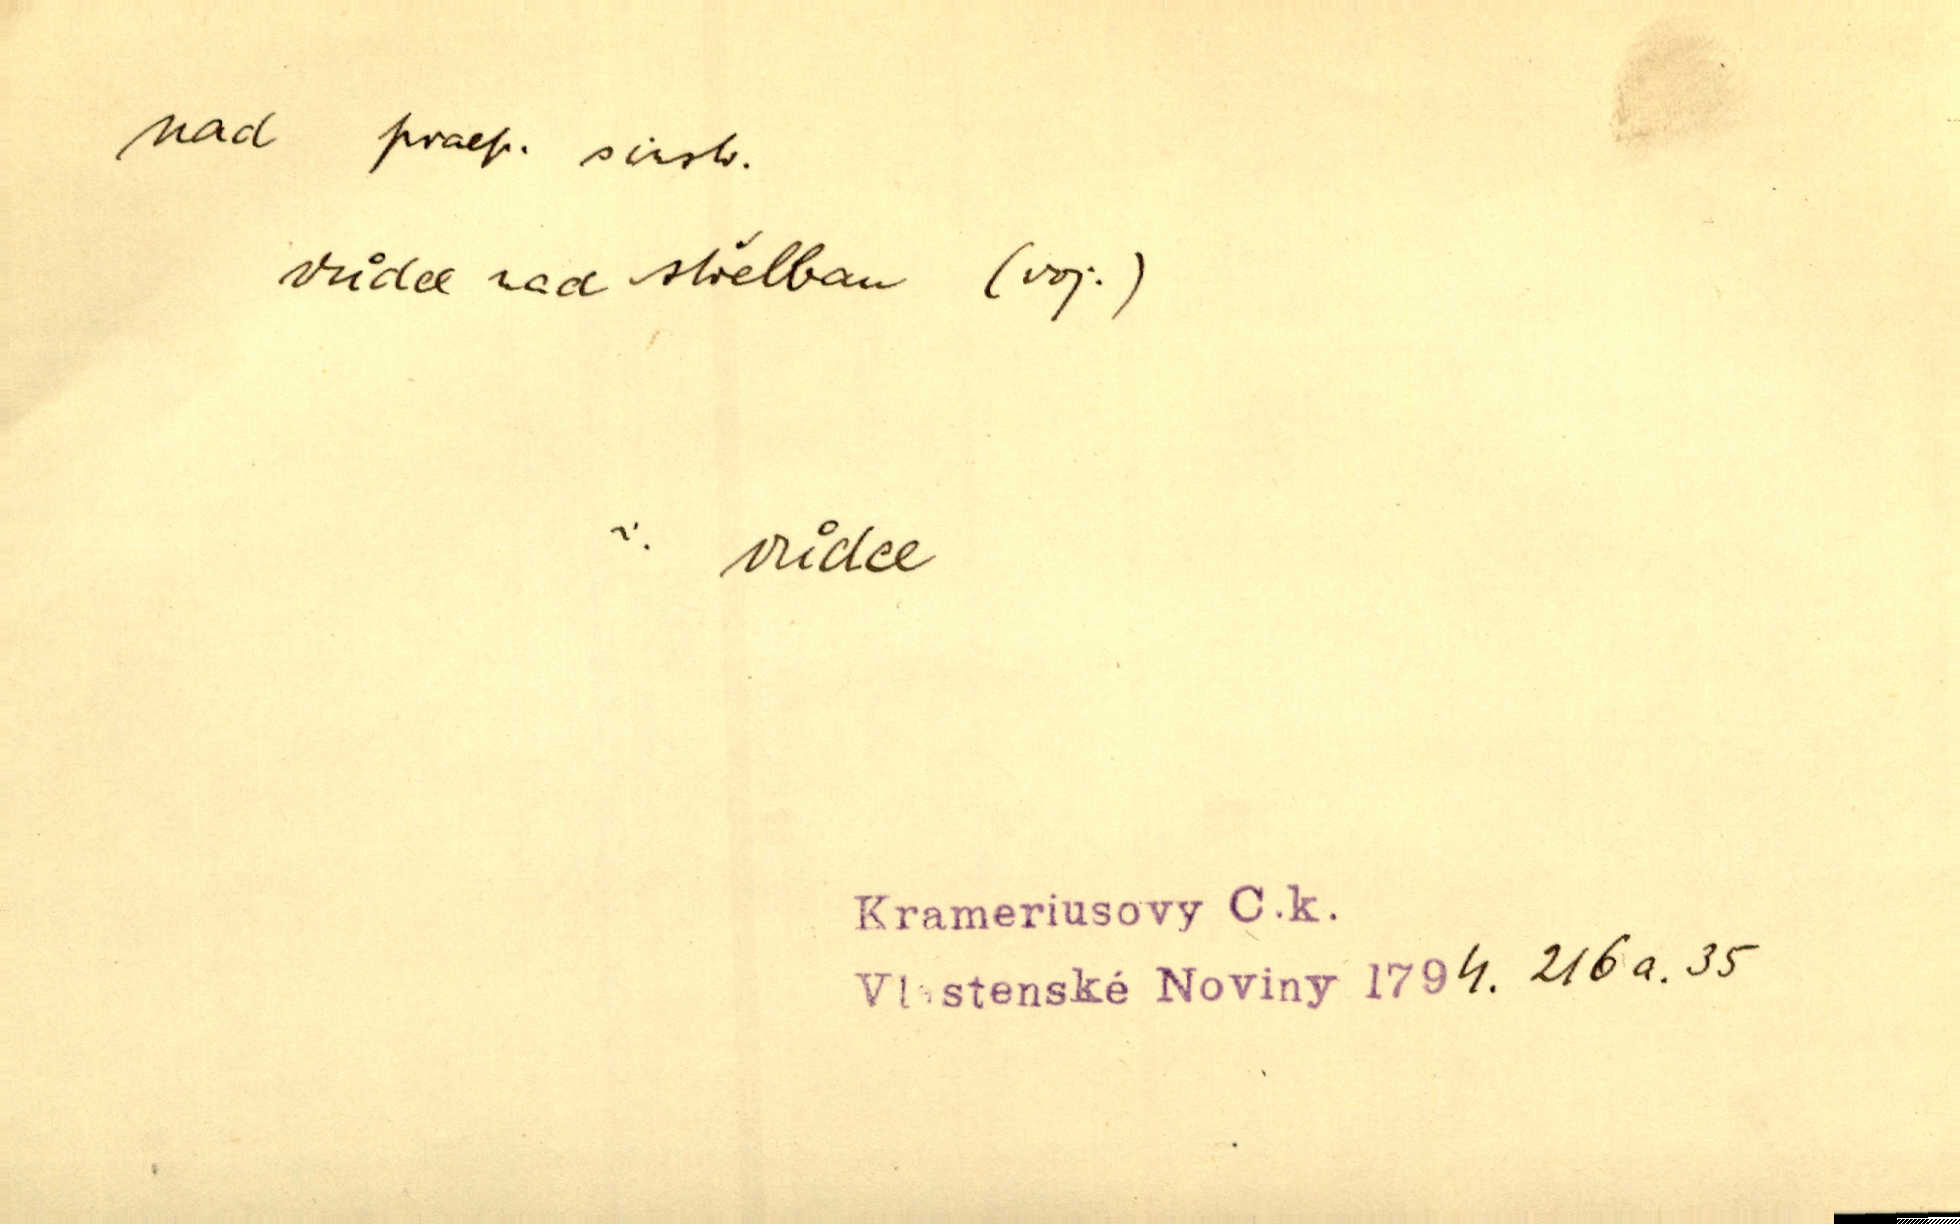 nad praep. s instr.
vůdce nad střelbau (voj.)
v. vůdce
Krameriusovy C.k.
Vlastenské Noviny 1794. 216a. 35